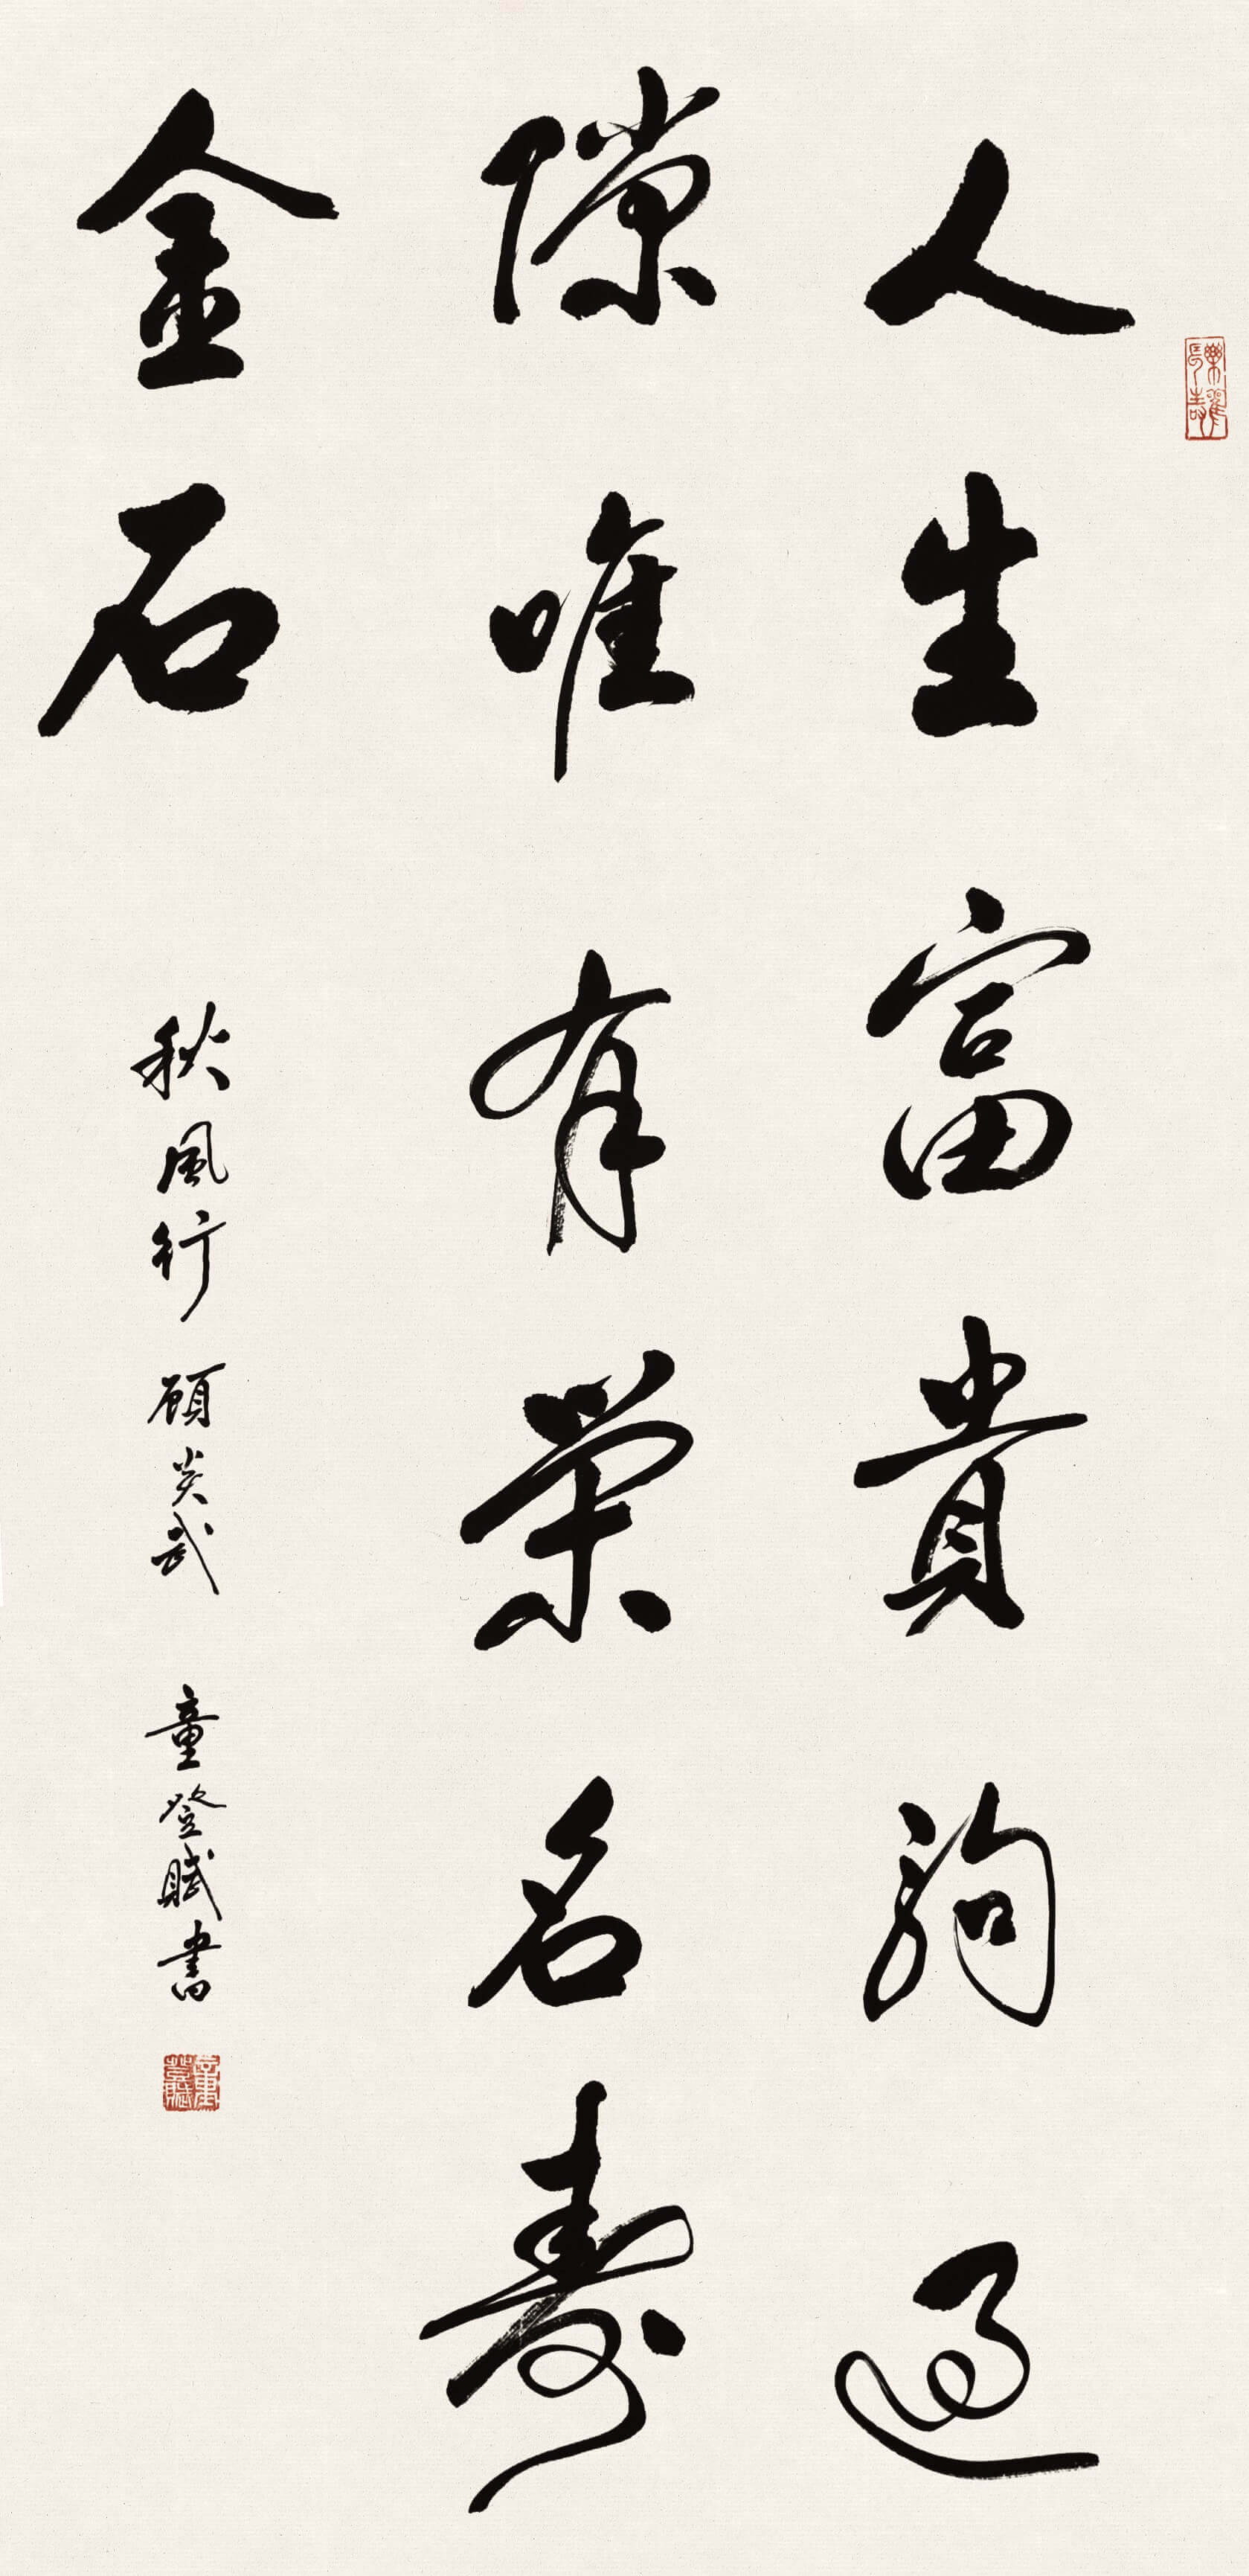 人生富貴駒過
隙唯有荣名壽
金石
秋風行 顧炎武 童登賦書